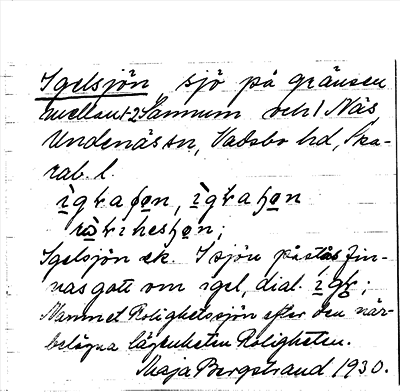 Igelsjön, sjö på gränsen
mellan 1-2 Sannum och 1 Näs
Undenäs sn, Vadsbo hd, Ska-
rab. l.
Igelsjön ek. I sjön påstås fin-
nas gott om igel, dial.
Namnet Rolighetssjön efter den när-
belägna lägenheten Roligheten.
Maja Bergstrand 1930.